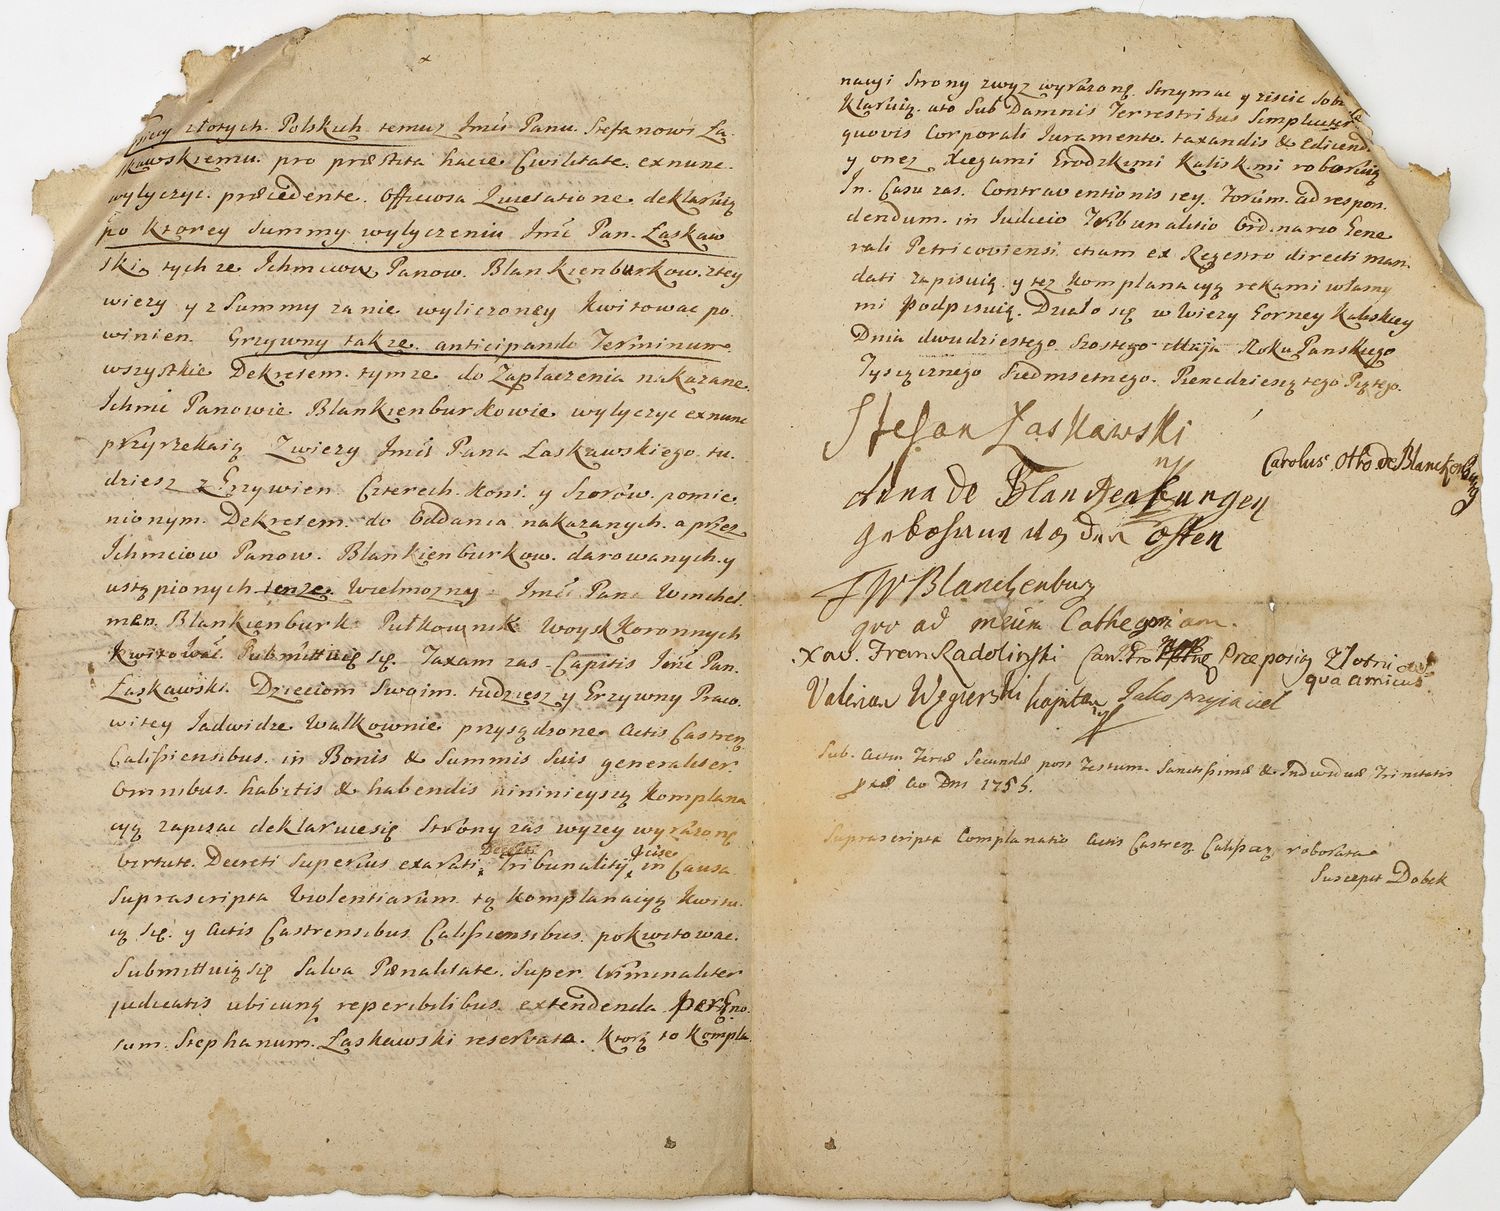 złotych Polskich temuz Imć Panu Stefanowi Ła-
skawskiemu pro præstita hacce Civilitate exnunc
wylyczyc præcedente Officiosa Quietatione deklaruią
po ktorey Summy wylyczeniu Imć Pan Łaskaw
ski tychze Ichmciow Panow Blankienburkow ztey
wiezy y z Summy zanie wyliczoney kwitowac po
winien. Grzywny takze anticipando Terminum
wszystkie Dekretem tymze do Zapłacenia nakazane
Ichmć Panowie Blankienburkowie wylyczyc exnunc
przyrzekaią Zwiezy Imć Pana Łaskawskiego tu-
dziesz z Grzywien Czterech koni y Szorów pomie-
nionym Dekretem do Oddania nakazanych a przez
Ichmciow Panow Blankienburkow darowanych y
ustąpionych tenze Wielmozny Imć Pan Winchel
man Blankienburk Pułkownik Woysk Koronnych
kwitować Submittuie się. Taxam zas Capitis Imć Pan
Łaskawski Dzieciom Swoim tudziesz y Grzywny Praco
witey Jadwidze Walkownie przysądzone Actis Castren
Calissiensibus in Bonis & Summis Suis generaliter
Omnibus habitis & habendis nininieyszą Komplana
cyą zapisac deklaruie się Strony zas wyzey wyrazone
Virtute Decreti Superius exarati Tribunality in Causa
Suprascripta Violentiarum tą Komplanacyą kwitu-
ią się y Actis Castrensibus Calissiensibus pokwitowac
Submittuią się Salva Pœnalitate Super Criminaliter
judicatis ubicunq reperibilibus extendenda per Gno-
sum Stephanum Łaskawski reservata. Ktorą to Kompla
nacyi Strony zwyz wyrazone Strzymac y ziscic Sobie
klaruią ato Sub Damnis Terrestribus Simpliciter
quovis Corporali Juramento taxandis & edicend
y onez Xięgami Grodzkiemi kaliskimi roboruią
In Casu zas Contraventionis iey Forum ad respon-
dendum in Judicio Tribunalitio Ordinario Gene
rali Petricoviensi etiam ex Regestro directi man-
dati zapisuią y tęz Komplanacyą rękami własny
mi podpisuią. Działo się w Wiezy Gorney Kaliskiey
Dnia dwudziestego Szostego Maja Roku Panskiego
Tysiącznego Siedmsetnego Piendziesiątego Piątego.
Stefan Łaskawski
Carolus Otto de Blanckenburg
Anna de Blanckenburgen
gebohrne von der Osten
FW Blanckenburg
quo ad meam Cathegoriam.
Xaw. Fran Radoliński Præposit Złotni
qua amicus
Valerian Węgierski kapitan Jako przyiaciel
Sub Actu Feriæ Secundæ post Festum Sanctissimæ & Individuæ Trinitatis
Ao Dni 1755.
Suprascripta Complanatio Actis Castren Calissien roborata
Suscepit Dobek